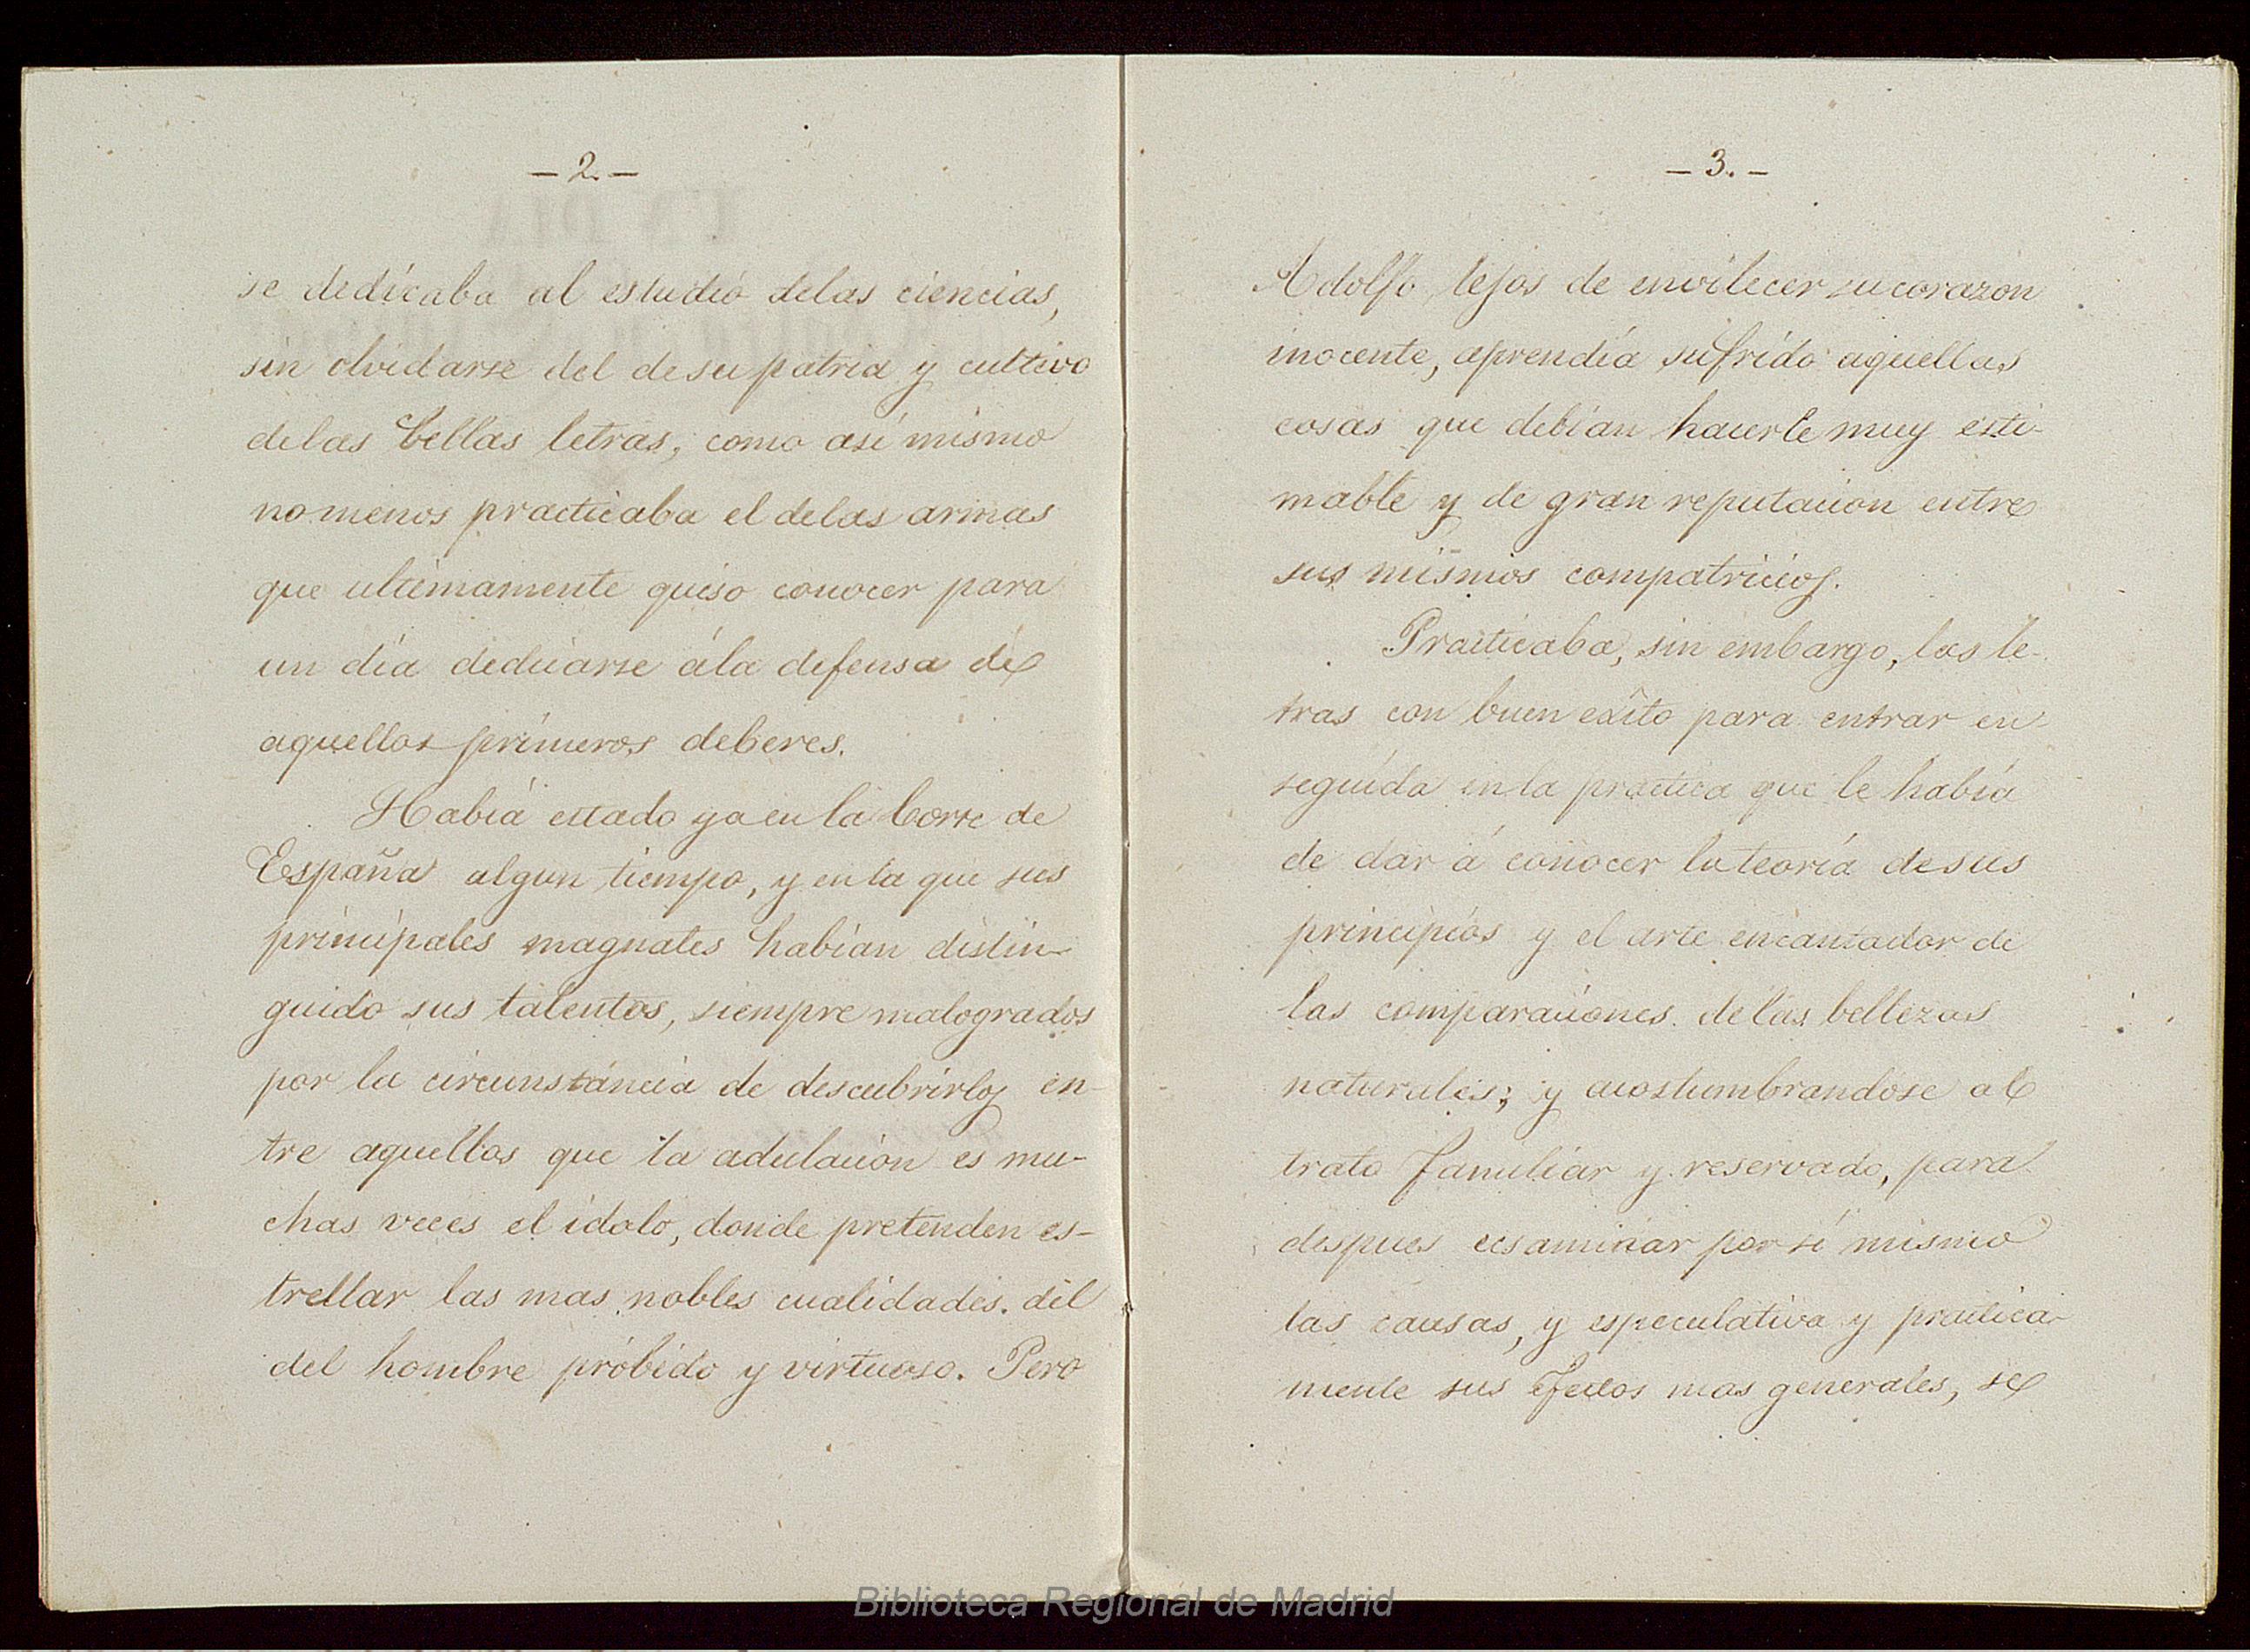 — 2. —
se dedicaba al estudio delas ciencias,
sin olvidarse del de su patria y cultivo
delas bellas letras, como asi mismo
no menos practicaba el delas armas
que ultimamente quiso conocer para
un día dedicarse ála defensa de
aquellos primeros deberes.
Habia estado ya en la Corte de
España algun tiempo, y en la que sus
principales magnates habían distin-
guido sus talentos, siempre malogrados
por la circunstáncia de descubrirlos en-
tre aquellos que la adulación es mu-
chas veces el idolo, donde pretenden es-
trellar las mas nobles cualidades. del
del hombre próbido y virtuoso. Pero
— 3. —
Adolfo, lejos de envilecer su corazon
inocente, aprendía sufrido aquellas
cosas que debían hacerle muy esti-
mable y de gran reputacion entre
sus mismos compatricios.
Practicaba, sin embargo, las le-
tras con buen exîto para entrar en
seguída en la practica que le había
de dar á conocer la teoría de sus
principios y el arte encantador de
las comparaciones. de las bellezas
naturales; y acostumbrandose al
trato familiar y reservado, para
despues ecsaminar por sí mismo
las causas, y especulativa y practica-
mente sus efectos mas generales, se
Biblioteca Regional de Madrid